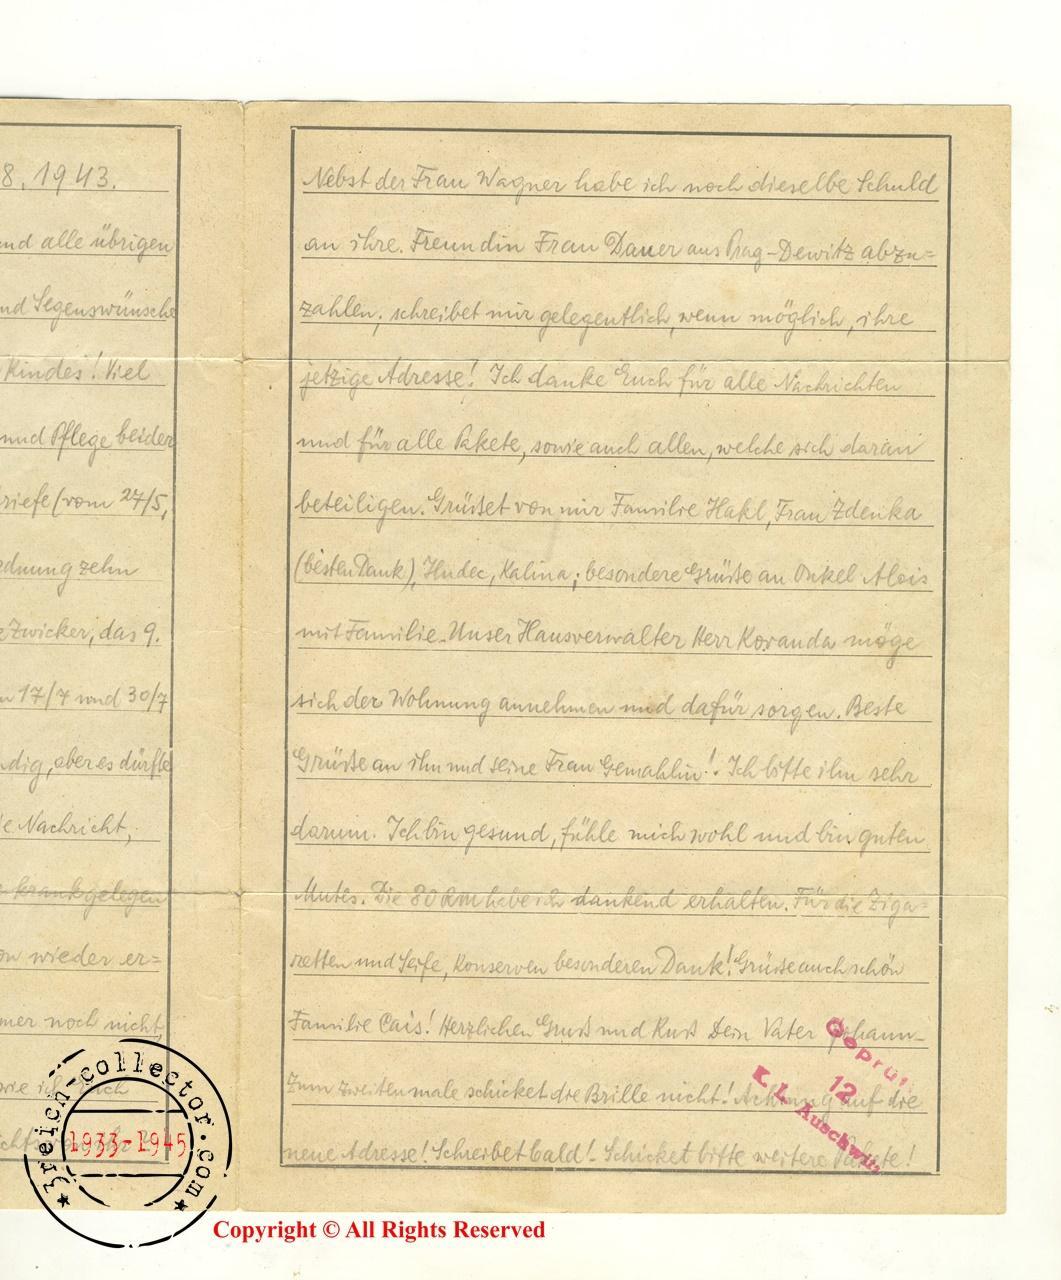 8. 1943.
und alle übrigen
und Segenswünsche
Kindes! Viel
und Pflege beider
riefe (vom 27/5,
rdnung zehn
Zwicker, das 9.
17/7 und 30/7
ndig, aber es dürfte
Nachricht,
krank gelegen
wieder er=
mer noch nicht,
wie ich Euch
Nebst der Frau Wagner habe ich noch dieselbe Schuld
an ihre. Freundin Frau Dauer aus Prag-Dewitz abzu=
zahlen, schreibet mir gelegentlich, wenn möglich, ihre
jetzige Adresse! Ich danke Euch für alle Nachrichten
und für alle Pakete, sowie auch allen, welche sich daran
beteiligen. Grüßet von mir Familie Hakl, Frau Zdenka
(besten Dank), Hudec, Kalina; besondere Grüße an Onkel Alois
mit Familie. Unser Hausverwalter Herr Koranda möge
sich der Wohnung annehmen und dafür sorgen. Beste
Grüße an ihn und seine Frau Gemahlin! Ich bitte ihn sehr
darum. Ich bin gesund, fühle mich wohl und bin guten
Mutes. Die 80 RM habe ich dankend erhalten. Für die Ziga=
retten und Seife, Konserven besonderen Dank! Grüße auch schön
Familie Cais! Herzlichen Gruß und Kuß Dein Vater Johann-
Zum zweiten male schicket die Brille nicht! Achtung auf die
neue Adresse! Schreibet bald!- Schicket bitte weitere Pakete!
Geprüft
12
K. L. Auschwitz
3reich-collector.com
1933-1945
Copyright © All Rights Reserved